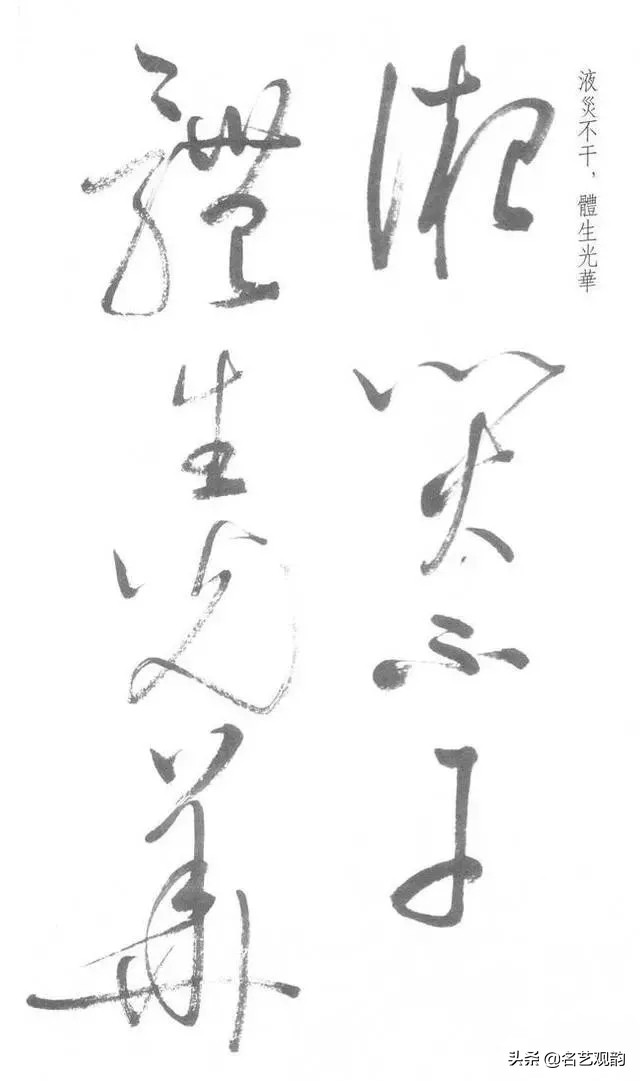 液災不干，體生光華
液災不干
體生光華
头条 @名艺观韵